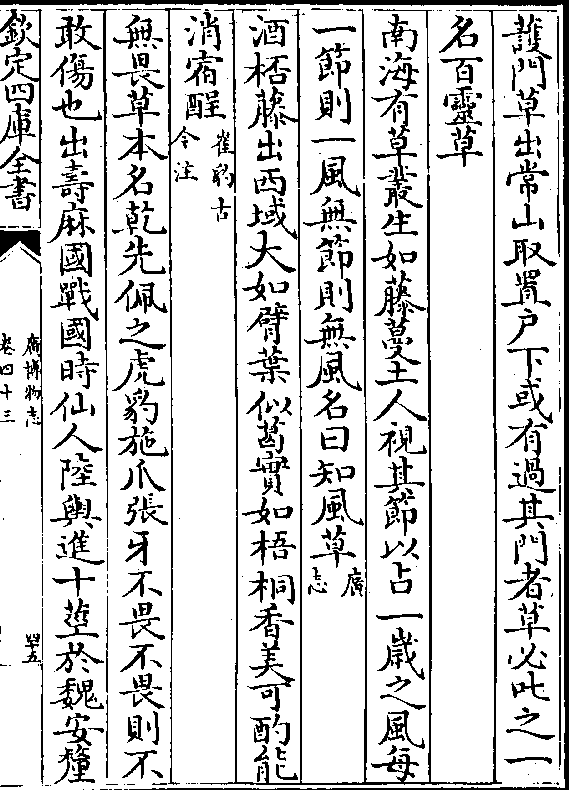 護門草出常山取置户下或有過其門者草必叱之一
名百靈草
南海有草叢生如藤蔓土人視其節以占一歳之風每
一節則一風無節則無風名曰知風草廣志
酒桮藤出西域大如臂葉似葛實如梧桐香美可酌能
消宿酲崔豹古今注
無畏草本名乾先佩之虎豹施爪張牙不畏不畏則不
敢傷也出壽麻國戰國時仙人陸輿進十莖於魏安釐
欽定四庫全書
廣博物志
卷四十三
四十五